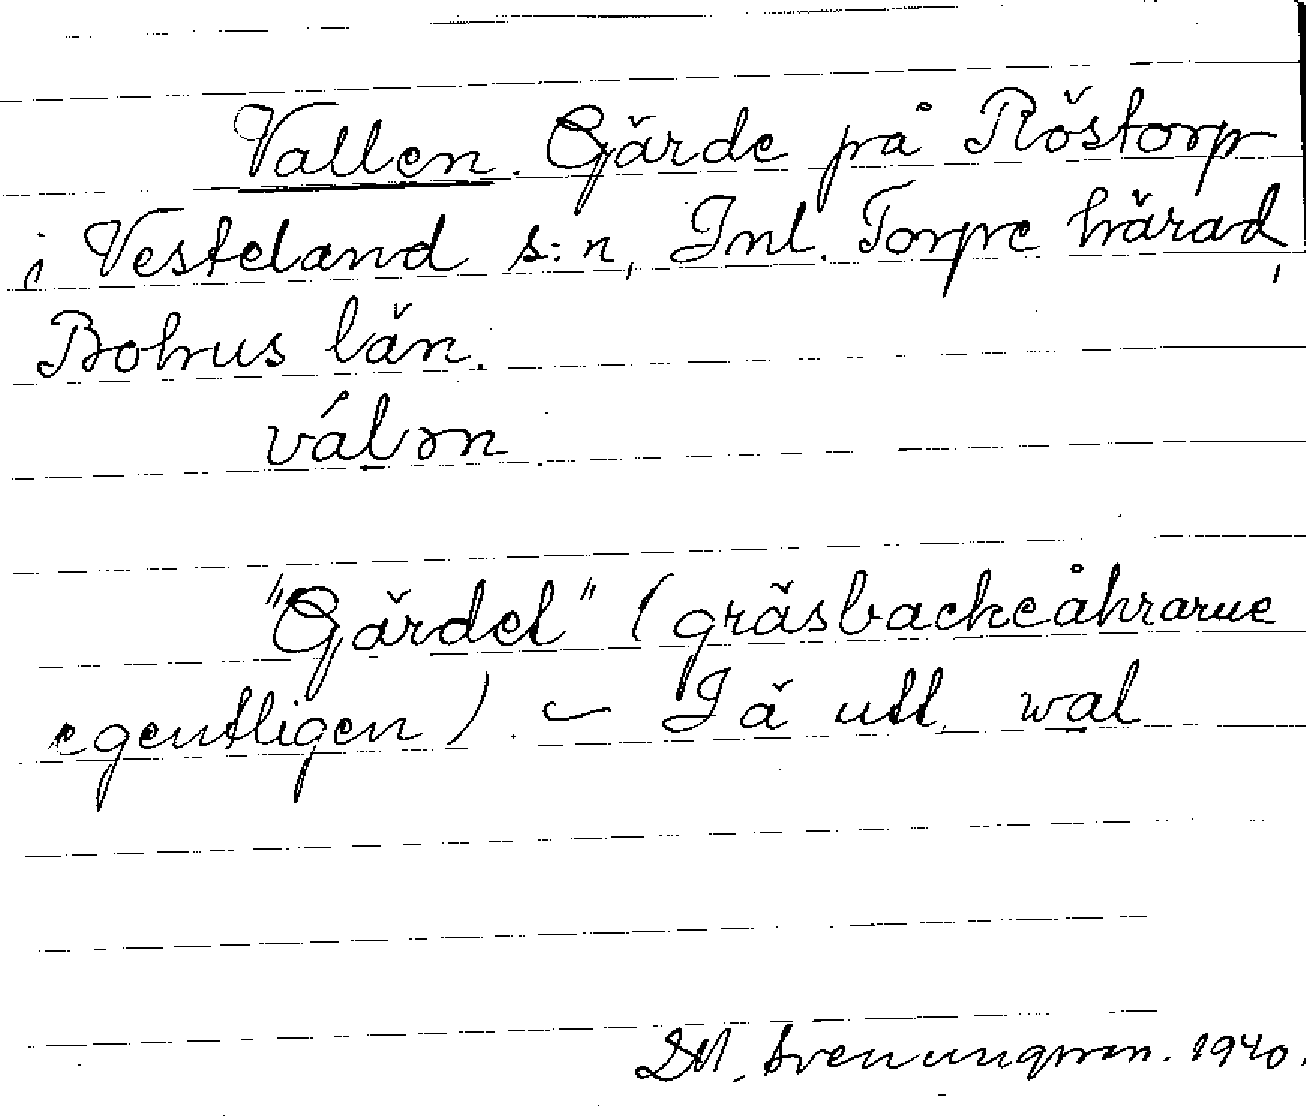 Vallen. Gärde på Röstorp
i Vesteland s:n, Inl. Torpe härad,
Bohus län.
válən
"Gärdet" (gräsbackeåkrarne
egentligen) — I ä utt. wal
Svenungsson. 1940.